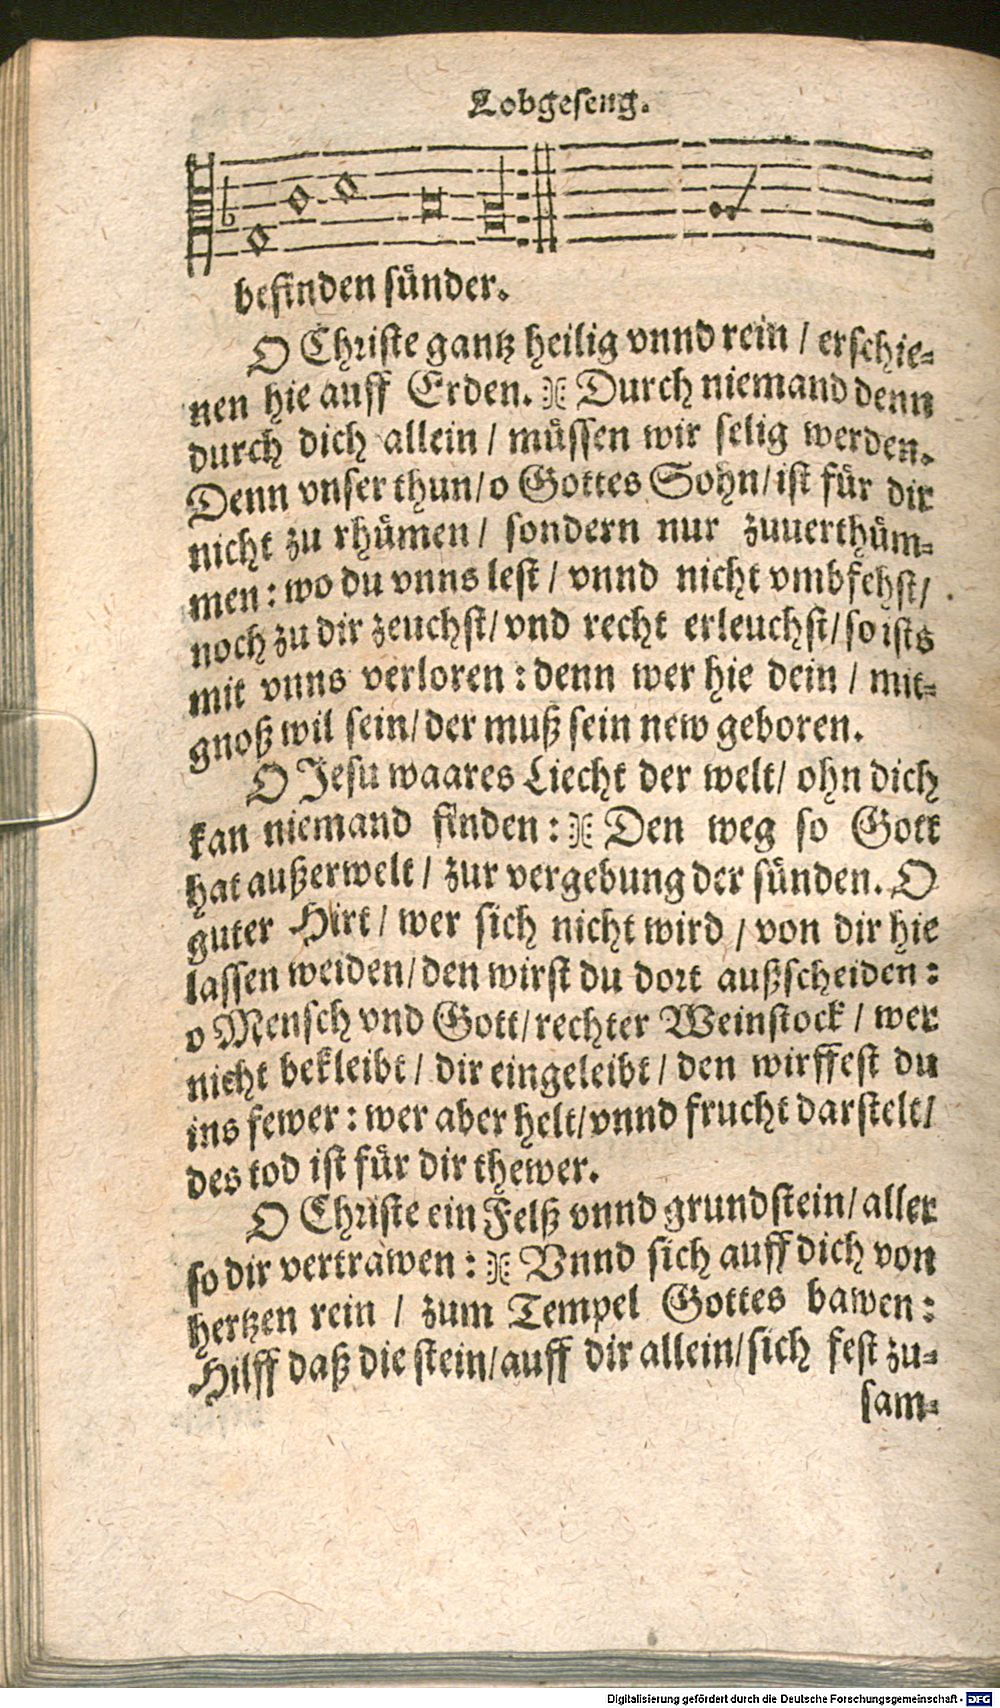 Lobgeseng.
befinden sünder.
O Christe gantz heilig vnnd rein / erschie⸗
nen hie auff Erden. Durch niemand denn
durch dich allein / müssen wir selig werden.
Denn vnser thun/ o Gottes Sohn/ ist für dir
nicht zu rhümen / sondern nur zuuerthüm⸗
men: wo du vnns lest / vnnd nicht vmbfehst/
noch zu dir zeuchst/ vnd recht erleuchst/ so ists
mit vnns verloren: denn wer hie dein / mit⸗
gnoß wil sein/ der muß sein new geboren.
O Jesu waares Liecht der welt/ ohn dich
kan niemand finden: Den weg so Gott
hat außerwelt / zur vergebung der sünden. O
guter Hirt / wer sich nicht wird / von dir hie
lassen weiden/ den wirst du dort außscheiden:
o Mensch vnd Gott/ rechter Weinstock / wer
nicht bekleibt / dir eingeleibt / den wirffest du
ins fewer: wer aber helt/ vnnd frucht darstelt/
des tod ist für dir thewer.
O Christe ein Felß vnnd grundstein/ aller
so dir vertrawen: Vnnd sich auff dich von
hertzen rein / zum Tempel Gottes bawen:
Hilff daß die stein/ auff dir allein/ sich fest zu⸗
sam⸗
Digitalisierung gefördert durch die Deutsche Forschungsgemeinschaft - DFG